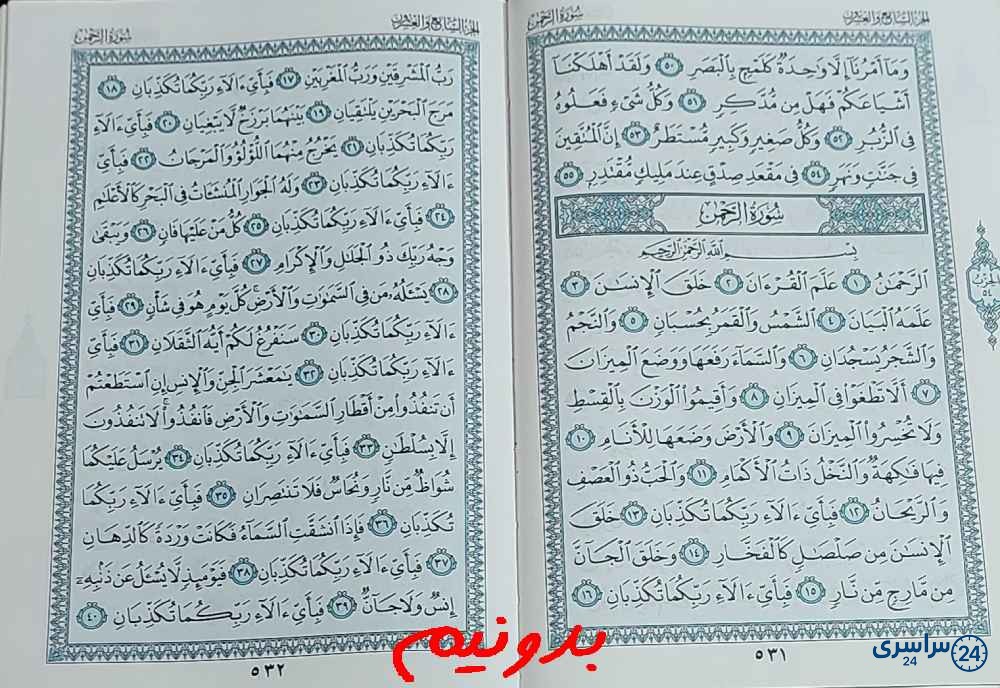 الجزء السابع والعشرون
سُورَةُ الرَّحْمَٰن
وَمَآ أَمْرُنَآ إِلَّا وَٰحِدَةٌ كَلَمْحٍۭ بِٱلْبَصَرِ ٥٠ وَلَقَدْ أَهْلَكْنَآ
أَشْيَاعَكُمْ فَهَلْ مِن مُّدَّكِرٍ ٥١ وَكُلُّ شَىْءٍ فَعَلُوهُ
فِى ٱلزُّبُرِ ٥٢ وَكُلُّ صَغِيرٍ وَكَبِيرٍ مُّسْتَطَرٌ ٥٣ إِنَّ ٱلْمُتَّقِينَ
فِى جَنَّٰتٍ وَنَهَرٍ ٥٤ فِى مَقْعَدِ صِدْقٍ عِندَ مَلِيكٍ مُّقْتَدِرٍۭ ٥٥
سُورَةُ الرَّحْمَٰن
بِسْمِ ٱللَّهِ ٱلرَّحْمَٰنِ ٱلرَّحِيمِ
ٱلرَّحْمَٰنُ ١ عَلَّمَ ٱلْقُرْءَانَ ٢ خَلَقَ ٱلْإِنسَٰنَ ٣
عَلَّمَهُ ٱلْبَيَانَ ٤ ٱلشَّمْسُ وَٱلْقَمَرُ بِحُسْبَانٍ ٥ وَٱلنَّجْمُ
وَٱلشَّجَرُ يَسْجُدَانِ ٦ وَٱلسَّمَآءَ رَفَعَهَا وَوَضَعَ ٱلْمِيزَانَ
٧ أَلَّا تَطْغَوْا۟ فِى ٱلْمِيزَانِ ٨ وَأَقِيمُوا۟ ٱلْوَزْنَ بِٱلْقِسْطِ
وَلَا تُخْسِرُوا۟ ٱلْمِيزَانَ ٩ وَٱلْأَرْضَ وَضَعَهَا لِلْأَنَامِ ١٠
فِيهَا فَٰكِهَةٌ وَٱلنَّخْلُ ذَاتُ ٱلْأَكْمَامِ ١١ وَٱلْحَبُّ ذُو ٱلْعَصْفِ
وَٱلرَّيْحَانُ ١٢ فَبِأَىِّ ءَالَآءِ رَبِّكُمَا تُكَذِّبَانِ ١٣ خَلَقَ
ٱلْإِنسَٰنَ مِن صَلْصَٰلٍ كَٱلْفَخَّارِ ١٤ وَخَلَقَ ٱلْجَآنَّ
مِن مَّارِجٍ مِّن نَّارٍ ١٥ فَبِأَىِّ ءَالَآءِ رَبِّكُمَا تُكَذِّبَانِ ١٦
الحزب
٥٤
٥٣١
الجزء السابع والعشرون
سُورَةُ الرَّحْمَٰن
رَبُّ ٱلْمَشْرِقَيْنِ وَرَبُّ ٱلْمَغْرِبَيْنِ ١٧ فَبِأَىِّ ءَالَآءِ رَبِّكُمَا تُكَذِّبَانِ ١٨
مَرَجَ ٱلْبَحْرَيْنِ يَلْتَقِيَانِ ١٩ بَيْنَهُمَا بَرْزَخٌ لَّا يَبْغِيَانِ ٢٠ فَبِأَىِّ ءَالَآءِ
رَبِّكُمَا تُكَذِّبَانِ ٢١ يَخْرُجُ مِنْهُمَا ٱللُّؤْلُؤُ وَٱلْمَرْجَانُ ٢٢ فَبِأَىِّ
ءَالَآءِ رَبِّكُمَا تُكَذِّبَانِ ٢٣ وَلَهُ ٱلْجَوَارِ ٱلْمُنشَـَٔاتُ فِى ٱلْبَحْرِ كَٱلْأَعْلَٰمِ
٢٤ فَبِأَىِّ ءَالَآءِ رَبِّكُمَا تُكَذِّبَانِ ٢٥ كُلُّ مَنْ عَلَيْهَا فَانٍ ٢٦ وَيَبْقَىٰ
وَجْهُ رَبِّكَ ذُو ٱلْجَلَٰلِ وَٱلْإِكْرَامِ ٢٧ فَبِأَىِّ ءَالَآءِ رَبِّكُمَا تُكَذِّبَانِ
٢٨ يَسْـَٔلُهُۥ مَن فِى ٱلسَّمَٰوَٰتِ وَٱلْأَرْضِ ۚ كُلَّ يَوْمٍ هُوَ فِى شَأْنٍ ٢٩ فَبِأَىِّ
ءَالَآءِ رَبِّكُمَا تُكَذِّبَانِ ٣٠ سَنَفْرُغُ لَكُمْ أَيُّهَ ٱلثَّقَلَانِ ٣١ فَبِأَىِّ
ءَالَآءِ رَبِّكُمَا تُكَذِّبَانِ ٣٢ يَٰمَعْشَرَ ٱلْجِنِّ وَٱلْإِنسِ إِنِ ٱسْتَطَعْتُمْ
أَن تَنفُذُوا۟ مِنْ أَقْطَارِ ٱلسَّمَٰوَٰتِ وَٱلْأَرْضِ فَٱنفُذُوا۟ ۚ لَا تَنفُذُونَ
إِلَّا بِسُلْطَٰنٍ ٣٣ فَبِأَىِّ ءَالَآءِ رَبِّكُمَا تُكَذِّبَانِ ٣٤ يُرْسَلُ عَلَيْكُمَا
شُوَاظٌ مِّن نَّارٍ وَنُحَاسٌ فَلَا تَنتَصِرَانِ ٣٥ فَبِأَىِّ ءَالَآءِ رَبِّكُمَا
تُكَذِّبَانِ ٣٦ فَإِذَا ٱنشَقَّتِ ٱلسَّمَآءُ فَكَانَتْ وَرْدَةً كَٱلدِّهَانِ
٣٧ فَبِأَىِّ ءَالَآءِ رَبِّكُمَا تُكَذِّبَانِ ٣٨ فَيَوْمَئِذٍ لَّا يُسْـَٔلُ عَن ذَنۢبِهِۦٓ
إِنسٌ وَلَا جَآنٌّ ٣٩ فَبِأَىِّ ءَالَآءِ رَبِّكُمَا تُكَذِّبَانِ ٤٠
٥٣٢
بدونیم
سراسری 24
24